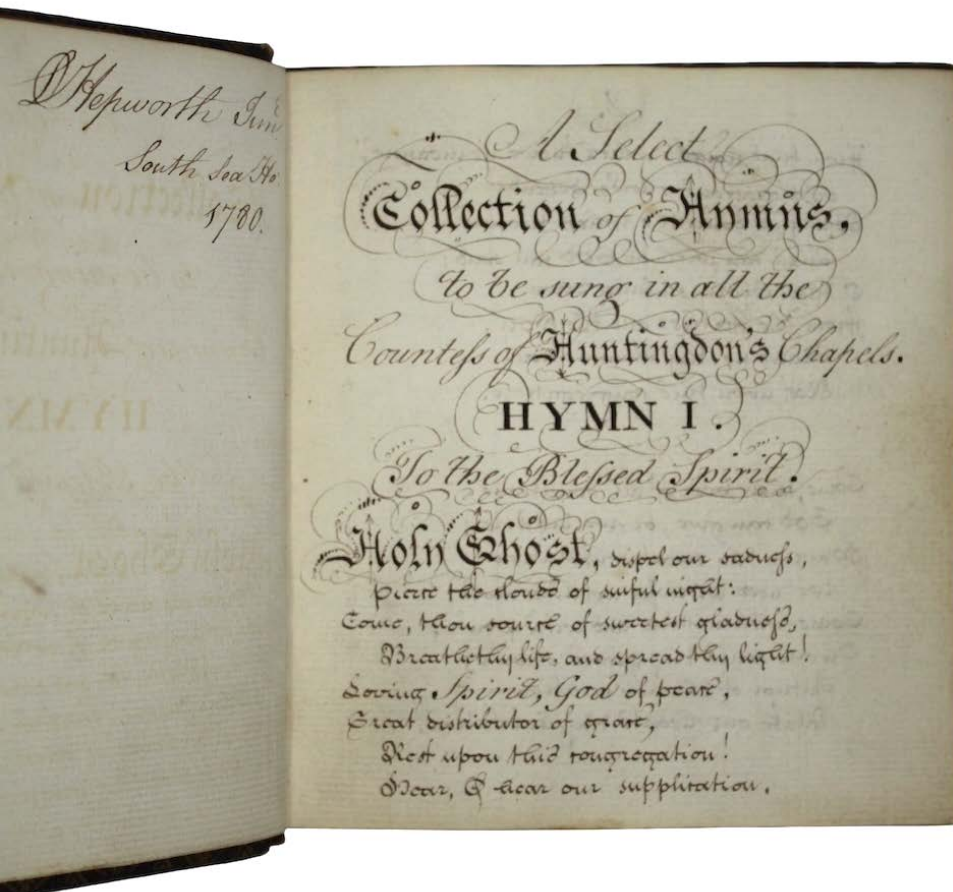 Hepworth Junr
South Sea Ho
1780.
A Select
Collection of Hymns,
to be sung in all the
Countess of Huntingdon's Chapels.
HYMN I.
To the Blessed Spirit.
Holy Ghost, dispel our sadness,
Pierce the clouds of sinful night:
Come, thou source of sweetest gladness,
Breathe thy life, and spread thy light!
Loving Spirit, God of peace,
Great distributor of grace,
Rest upon this congregation!
Hear, & hear our supplication.